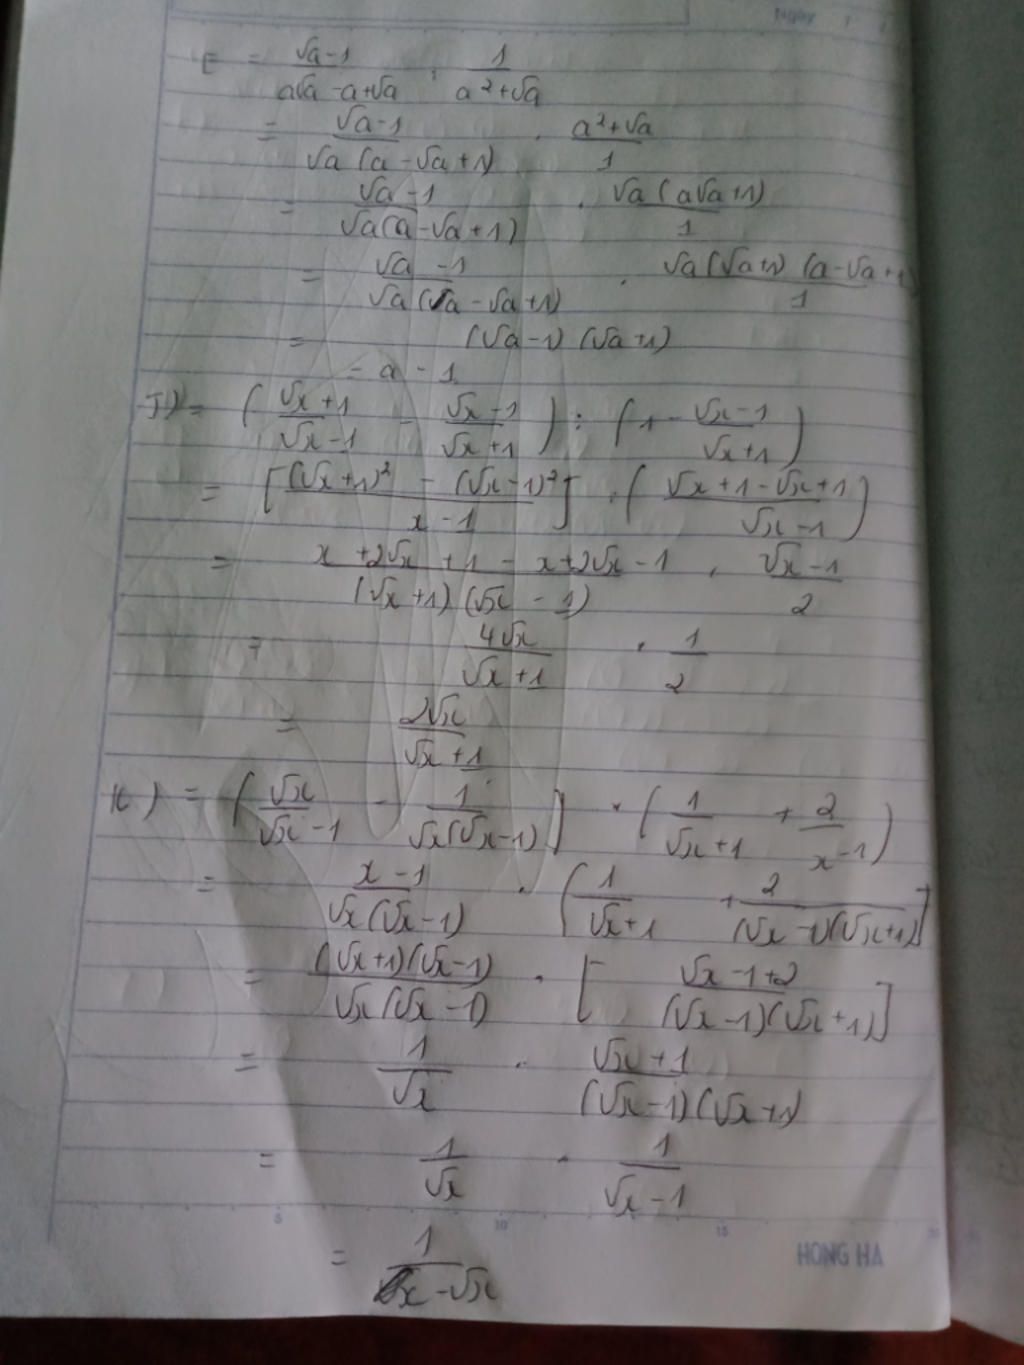 Ngày
E = \frac{\sqrt{a}-1}{a\sqrt{a}-a+\sqrt{a}} : \frac{1}{a^2+\sqrt{a}}
= \frac{\sqrt{a}-1}{\sqrt{a}(a-\sqrt{a}+1)} . \frac{a^2+\sqrt{a}}{1}
= \frac{\sqrt{a}-1}{\sqrt{a}(a-\sqrt{a}+1)} . \frac{\sqrt{a}(a\sqrt{a}+1)}{1}
= \frac{\sqrt{a}-1}{\sqrt{a}(a-\sqrt{a}+1)} . \frac{\sqrt{a}(\sqrt{a}+1)(a-\sqrt{a}+1)}{1}
= (\sqrt{a}-1)(\sqrt{a}+1)
= a - 1
J) = (\frac{\sqrt{x}+1}{\sqrt{x}-1} - \frac{\sqrt{x}-1}{\sqrt{x}+1}) : (1 - \frac{\sqrt{x}-1}{\sqrt{x}+1})
= [\frac{(\sqrt{x}+1)^2 - (\sqrt{x}-1)^2}{x-1}] : (\frac{\sqrt{x}+1-\sqrt{x}+1}{\sqrt{x}-1})
= \frac{x+2\sqrt{x}+1-x+2\sqrt{x}-1}{(\sqrt{x}+1)(\sqrt{x}-1)} . \frac{\sqrt{x}-1}{2}
= \frac{4\sqrt{x}}{\sqrt{x}+1} . \frac{1}{2}
= \frac{2\sqrt{x}}{\sqrt{x}+1}
K) = (\frac{\sqrt{x}}{\sqrt{x}-1} - \frac{1}{\sqrt{x}(\sqrt{x}-1)}] . (\frac{1}{\sqrt{x}+1} + \frac{2}{x-1})
= \frac{x-1}{\sqrt{x}(\sqrt{x}-1)} . (\frac{1}{\sqrt{x}+1} + \frac{2}{(\sqrt{x}-1)(\sqrt{x}+1)}]
= \frac{(\sqrt{x}+1)(\sqrt{x}-1)}{\sqrt{x}(\sqrt{x}-1)} . [\frac{\sqrt{x}-1+2}{(\sqrt{x}-1)(\sqrt{x}+1)}]
= \frac{1}{\sqrt{x}} . \frac{\sqrt{x}+1}{(\sqrt{x}-1)(\sqrt{x}+1)}
= \frac{1}{\sqrt{x}} . \frac{1}{\sqrt{x}-1}
5 10 15
HONG HA
= \frac{1}{x-\sqrt{x}}